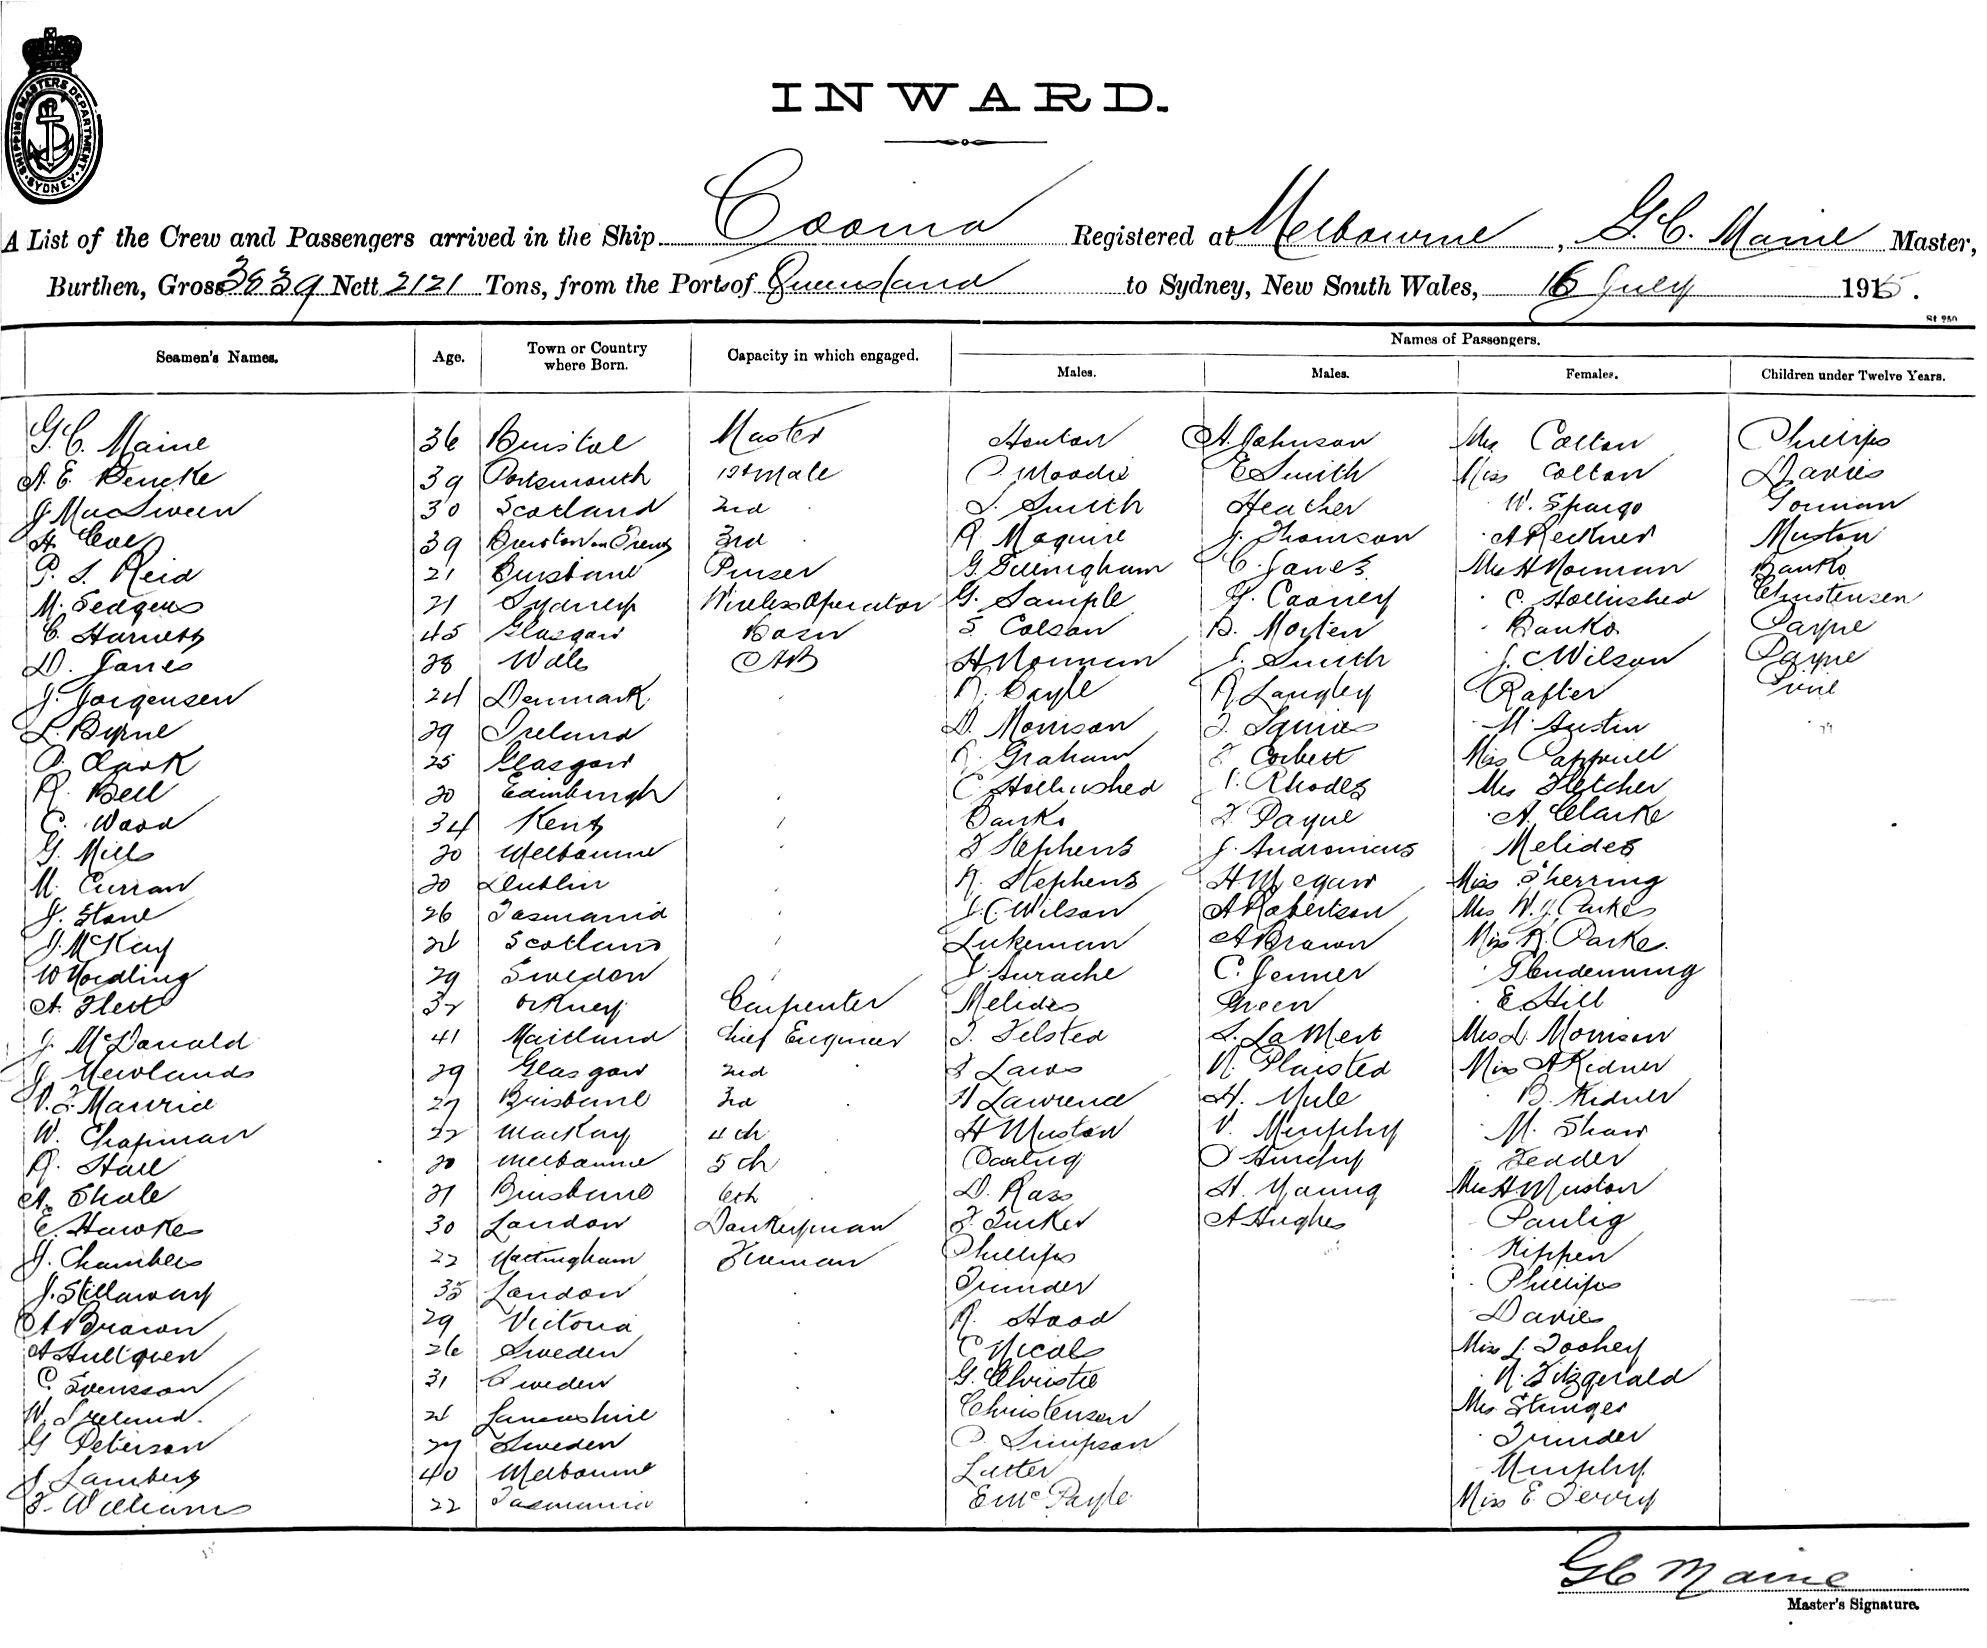 SHIPPING MASTERS DEPARTMENT. SYDNEY.
INWARD.
A List of the Crew and Passengers arrived in the Ship Cooma Registered at Melbourne, G.C. Maine Master,
Burthen, Gross 3839 Nett 2121 Tons, from the Ports of Queensland to Sydney, New South Wales, 16 July 1915.
St 250
Names of Passengers.
Seamen's Names. Age. Town or Country where Born. Capacity in which engaged. Males. Males. Females. Children under Twelve Years.
G.C. Maine 36 Bristol Master Houton A. Johnson Mrs Colton Phillips
A.E. Bencke 39 Portsmouth 1st Mate C. Moodie E Smith Miss Colton Davies
J MacSween 30 Scotland 2nd S. Smith Heather W. Spargo Gorman
H. 39 Burton on Trent 3rd R. Maguire J. Thomson A Muston
P. S. Reid 21 Brisbane Purser G. Gillingham C. Jones Mrs H Norman Banks
M. Sedgers 21 Sydney Wireless Operator G. Sample J. Cooney C. Hollinshed Christensen
C. Harnett 45 Glasgow Bosn S. Colson B. Morten Banks Payne
D. Jones 28 Wales AB H Norman J. Smith J. C Wilson Payne
J. Jorgensen 24 Denmark R. Bayle R Langley Rafter Pirie
L. Byrne 29 Ireland D. Morrison J. Squires M Austin
P. Clark 25 Glasgow R. Graham F Corbett Miss
R. Bell 30 Edinburgh C Hollinshed Rhodes Mrs Fletcher
C. Wood 34 Kent Banks F Payne A. Clarke
G. Mills 20 Melbourne F Stephens J. Andronicus Melides
M. Curran 20 Dublin R. Stephens H Megaw Miss Sherring
J. Stone 26 Tasmania J. C Wilson A Robertson Mrs W. J. Parkes
J. McKay 24 Scotland Lukeman A Brown Miss R. Parkes.
W Nordling 29 Sweden J. Aurache C. Jenner Glendenning
A. Flett 32 Orkney Carpenter Melides Green E Hill
J. McDonald 41 Maitland Chief Engineer F. Felsted L. LaMert Mrs D. Morrison
J Newlands 29 Glasgow 2nd F Laws R. Plaisted Miss A Kidner
V. F Maurice 27 Brisbane 3rd H Lawrence H. Mule B. Kidner
W. Chapman 22 Mackay 4th H Muston V. Murphy M. Shaw
R. Hall 20 Melbourne 5th Paulig Murphy Fedder
A. Shale 21 Brisbane 6th D. Ross H. Young Mrs H Muston
E. Hawkes 30 London Donkeyman F. Tucker A Hughes Paulig
J. Chambers 22 Nottingham Fireman Phillips Kippen
J. Stillaway 35 London Trinder Phillips
A Brown 29 Victoria R. Hood Davies
A Hullgren 26 Sweden C Nicol Miss J. Toohey
C. Svensson 31 Sweden G. Christie N. Fitzgerald
W. Ireland. 21 Lancashire Christensen Mrs Stringer
G Peterson 27 Sweden P. Simpson Trinder
J Lambert 40 Melbourne Lutter Murphy
F. Williams 22 Tasmania E Mc Phyle Miss E. Terry
G C Maine
Master's Signature.